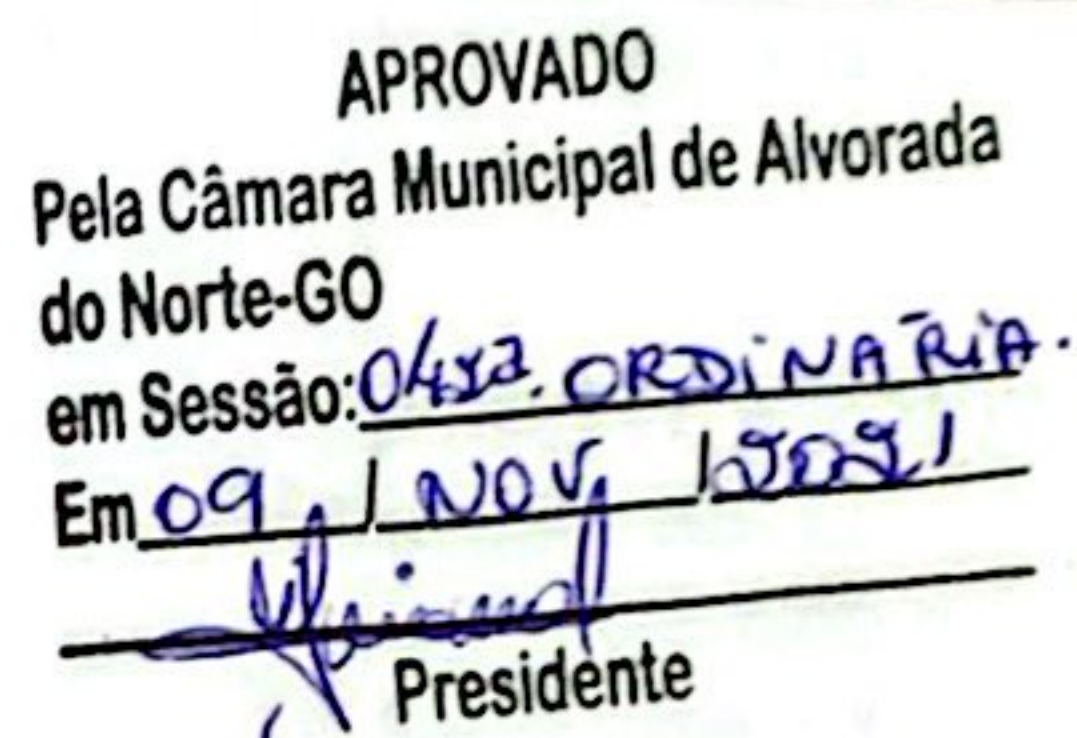 APROVADO
Pela Câmara Municipal de Alvorada
do Norte-GO
em Sessão: ORDINÁRIA.
Em 09 / NOV / 2021
Presidente